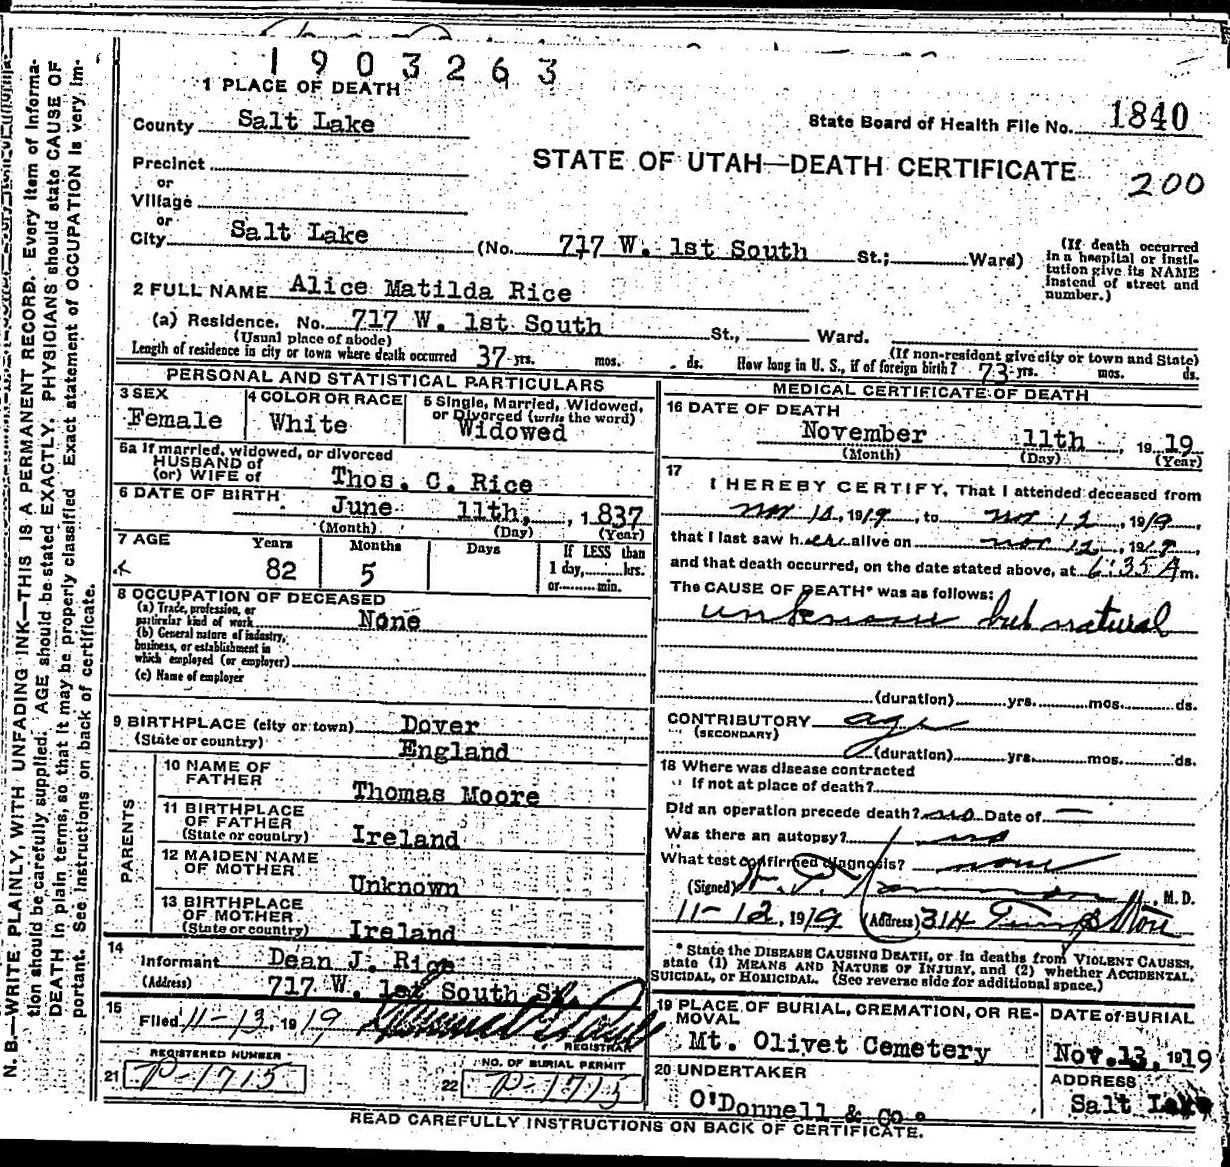 1903263
1 PLACE OF DEATH
County Salt Lake
State Board of Health File No. 1840
Precinct
STATE OF UTAH—DEATH CERTIFICATE
200
or
Village
or
City Salt Lake (No. 717 W. 1st South St.; Ward)
(If death occurred in a hospital or institution give its NAME instead of street and number.)
2 FULL NAME Alice Matilda Rice
(a) Residence. No. 717 W. 1st South St., Ward.
(Usual place of abode)
(If non-resident give city or town and State)
Length of residence in city or town where death occurred 37 yrs. mos. ds. How long in U. S., if of foreign birth? 73 yrs. mos. ds.
PERSONAL AND STATISTICAL PARTICULARS
3 SEX
Female
4 COLOR OR RACE
White
5 Single, Married, Widowed, or Divorced (write the word)
Widowed
5a If married, widowed, or divorced
HUSBAND of
(or) WIFE of Thos. C. Rice
6 DATE OF BIRTH June 11th, , 1837
(Month) (Day) (Year)
7 AGE Years Months Days If LESS than
82 5 1 day,.....hrs.
or.....min.
8 OCCUPATION OF DECEASED
(a) Trade, profession, or
particular kind of work None
(b) General nature of industry,
business, or establishment in
which employed (or employer)
(c) Name of employer
9 BIRTHPLACE (city or town) Dover
(State or country) England
PARENTS
10 NAME OF
FATHER Thomas Moore
11 BIRTHPLACE
OF FATHER
(State or country) Ireland
12 MAIDEN NAME
OF MOTHER
Unknown
13 BIRTHPLACE
OF MOTHER
(State or country) Ireland
14
Informant Dean J. Rice
(Address) 717 W. 1st South St.
15
Filed 11-13, 1919
REGISTRAR
REGISTERED NUMBER
21 P-1715
NO. OF BURIAL PERMIT
22 P-1715
MEDICAL CERTIFICATE OF DEATH
16 DATE OF DEATH
November 11th , 1919
(Month) (Day) (Year)
17
I HEREBY CERTIFY, That I attended deceased from
Nov , 1919, to Nov 12, 1919,
that I last saw her alive on Nov 12, 1919,
and that death occurred, on the date stated above, at 6:35 A m.
The CAUSE OF DEATH* was as follows:
unknown but natural
(duration) yrs. mos. ds.
CONTRIBUTORY age
(SECONDARY)
(duration) yrs. mos. ds.
18 Where was disease contracted
If not at place of death?
Did an operation precede death? no Date of —
Was there an autopsy? no
What test confirmed diagnosis? none
(Signed) , M. D.
11-12, 1919 (Address) 314
* State the DISEASE CAUSING DEATH, or in deaths from VIOLENT CAUSES,
state (1) MEANS AND NATURE OF INJURY, and (2) whether ACCIDENTAL,
SUICIDAL, or HOMICIDAL. (See reverse side for additional space.)
19 PLACE OF BURIAL, CREMATION, OR REMOVAL
Mt. Olivet Cemetery
DATE of BURIAL
Nov. 13, 1919
20 UNDERTAKER
O'Donnell & Co.
ADDRESS
Salt Lake
READ CAREFULLY INSTRUCTIONS ON BACK OF CERTIFICATE.
N. B.—WRITE PLAINLY, WITH UNFADING INK—THIS IS A PERMANENT RECORD. Every item of information should be carefully supplied. AGE should be stated EXACTLY. PHYSICIANS should state CAUSE OF DEATH in plain terms, so that it may be properly classified. Exact statement of OCCUPATION is very important. See instructions on back of certificate.